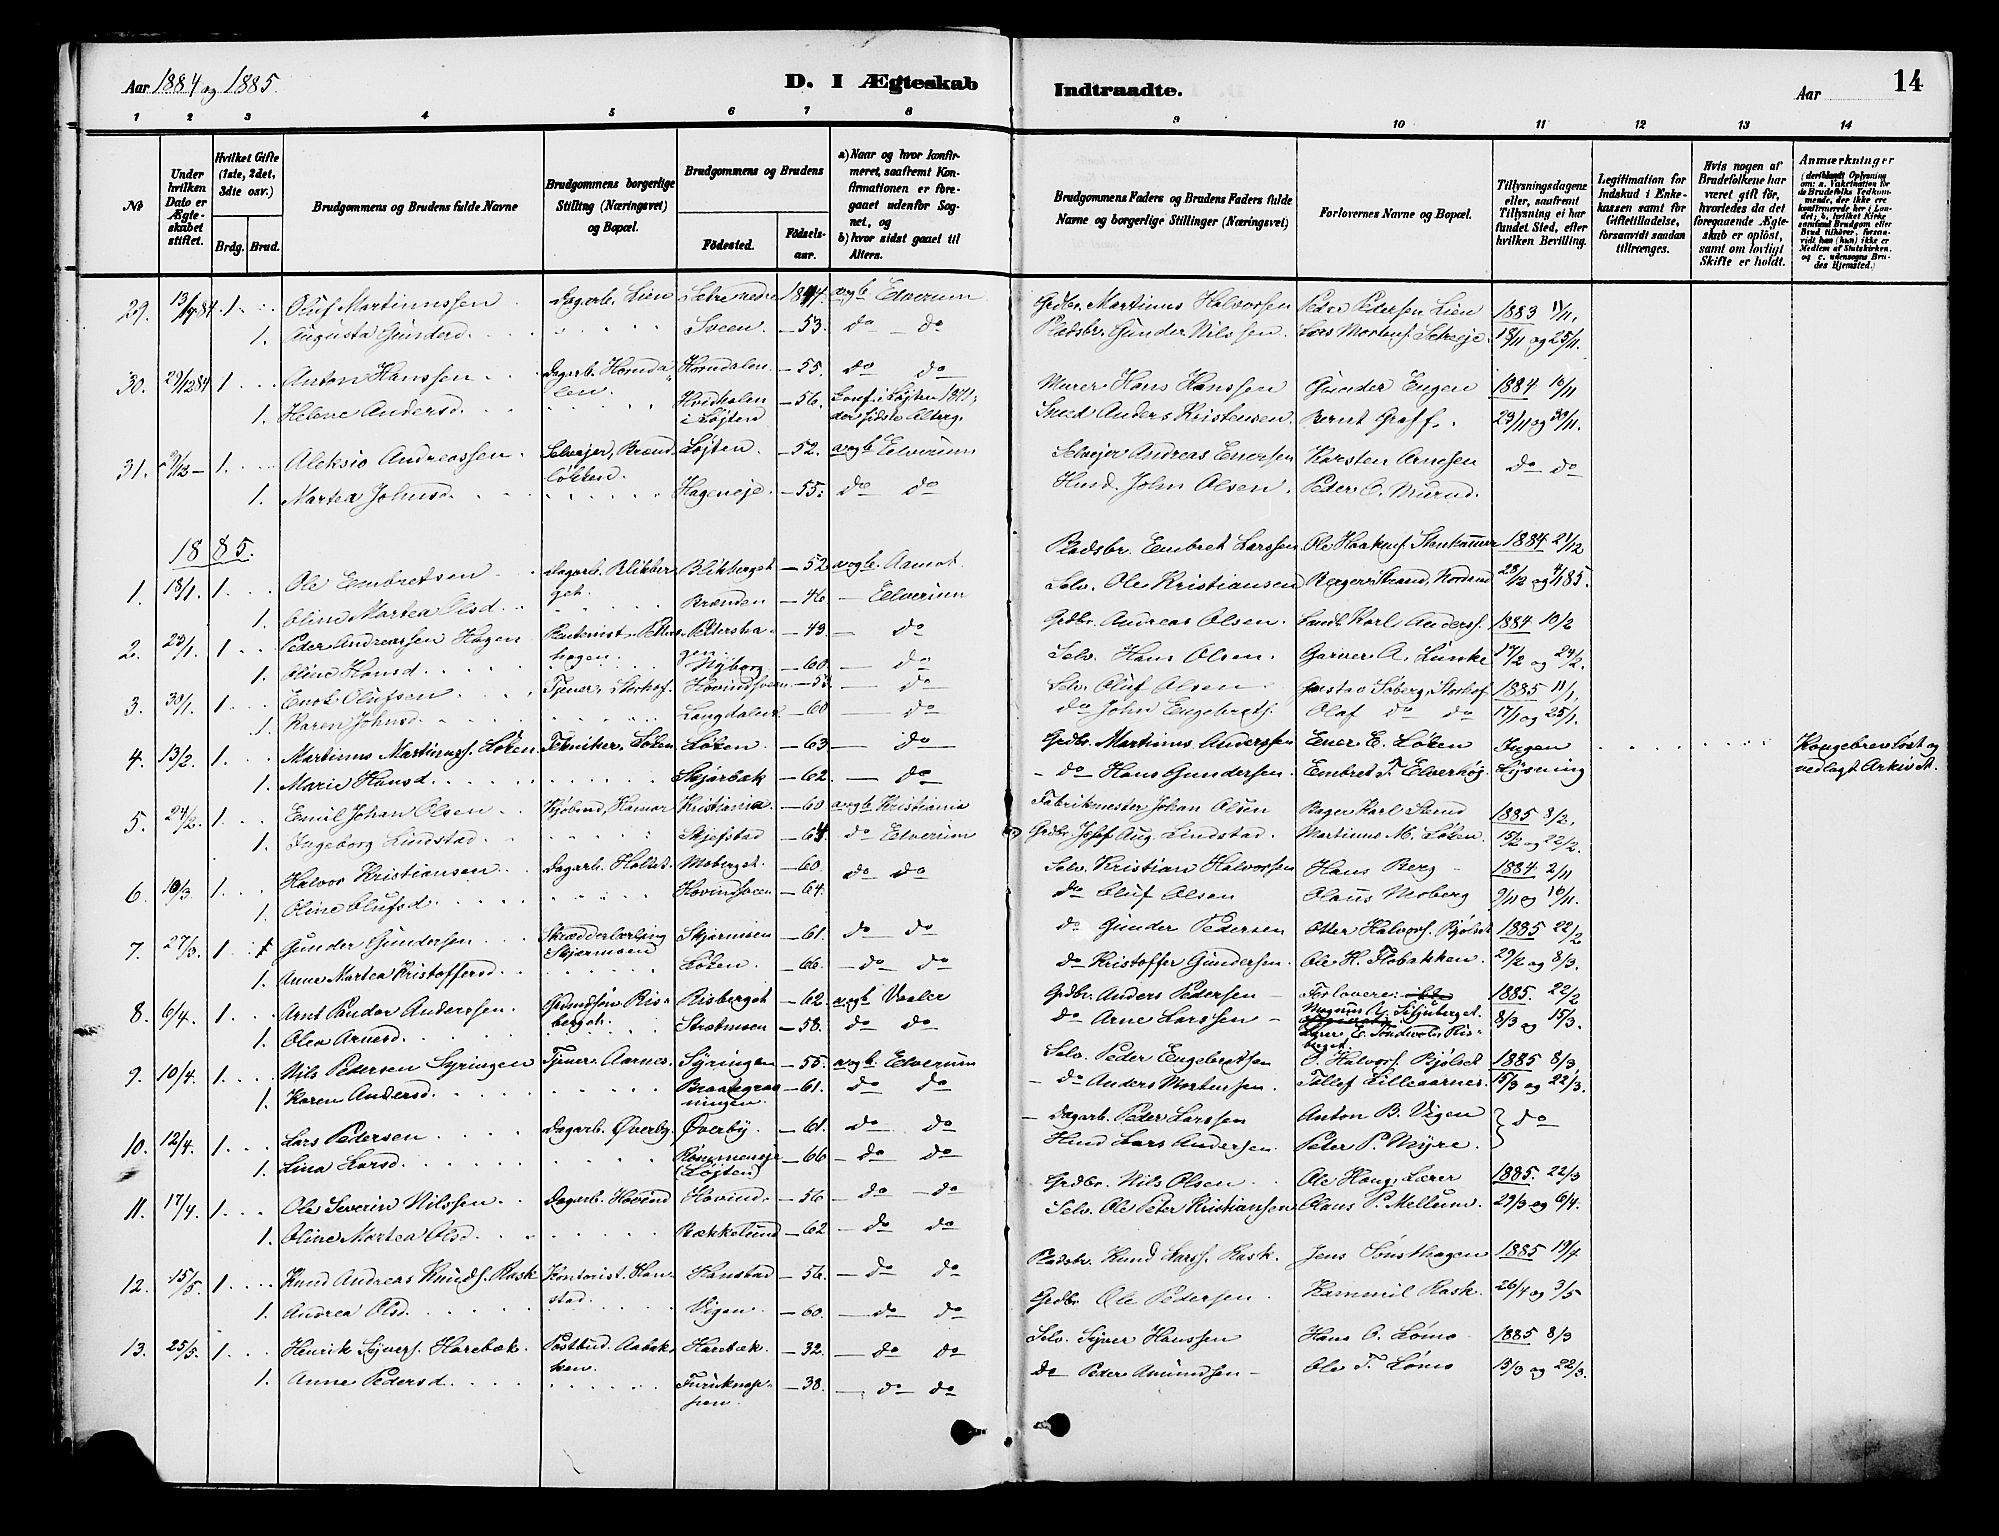 Aar 1884 og 1885
D. I Ægteskab
Indtraadte.
Aar
14
1 2 3 4 5 6 7 8 9 10 11 12 13 14
No
Under hvilken Dato er Ægteskabet stiftet.
Hvilket Gifte (1ste, 2det, 3die osv.)
Brdg. Brud.
Brudgommens og Brudens fulde Navne
Brudgommens borgerlige Stilling (Næringsvei) og Bopæl.
Brudgommens og Brudens
Födested.
Födselsaar.
a) Naar og hvor konfirmeret, saafremt Konfirmationen er foregaaet udenfor Sognet, og
b) hvor sidst gaaet til Alters.
Brudgommens Faders og Brudens Faders fulde Navne og borgerlige Stillinger (Næringsvei)
Forlovernes Navne og Bopæl.
Tillysningsdagene eller, saafremt Tillysning ei har fundet Sted, efter hvilken Bevilling.
Legitimation for Indskud i Enkekassen samt for Giftetilladelse, forsaavidt saadan tiltrænges.
Hvis nogen af Brudefolkene har været gift för, hvorledes da det foregaaende Ægteskab er oplöst, samt om lovligt Skifte er holdt.
Anmærkninger
29. 1. Oluf Martinussen Dagarb. Lien a og b Elverum Grdbr. Martinus Halvorsen Peder Pedersen Lien 1883 11/11,
1. Augusta Gundersd. Sveen. — 53. do — do Pladsbr. Gunder Nilssen Lars Mortens. 18/11 og 25/11.
30. 29/12 84 1 Anton Hanssen Dagarb. Horndalen Horndalen — 55. do do Murer Hans Hanssen Gunder Engen 1884 16/11
1. Helene Andersd. i Løjten — 56. Conf. i Løjten 1871, Smed Anders Kristensen Bernt Graff. 23/11 og 30/11.
31. 1. Aleksio Andreassen Selvejer, Brændløkken. Løjten. — 52. a og b Elverum Selvejer Andreas Enersen Karsten Arnesen do do
1. Martea Johnsd. Hageneje — 55. do do Husd. John Olsen. Peder O. Murud.
1885.
1. 18/1. 1. Ole Embretsen Dagarb. Blikberget. Blikberget — 52. a og b. Aamot Pladsbr. Embret Larssen Ole Haakens. Stenkammer 1884 21/12
1. Oline Martea Olsd. Brænden — 46. — Elverum Selv. Ole Kristiansen Berger Strand, Nordend 28/12 og 4/1 85.
2. 1. Peder Andreassen Hagen Rentenist, Petershagen. Petershagen. — 43. — do Grdbr. Andreas Olsen. Landh. Karl Anders. 1884 10/2
1. Oline Hansd. Nyborg — 60. — do Selv. Hans Olsen. Garver A. Lunke 17/2 og 24/2.
3. 30/1. 1. Enok Olufsen Tjener, Storhof. Hovindsveen — 53. — do Selv. Oluf Olsen Gustav Soberg, Storhof 1885 11/1,
1. Karen Johnsd. Langdalen — 60 — do do John Engebrets. Olaf do do 17/1 og 25/1.
4. 13/2. 1. Martinus Martinus. Løken Tekniker, Løken Løken. — 63. — do Grdbr. Martinus Anderssen Ener E. Løken Ingen Kongebrev løst og
1. Marie Hansd. Skjærbæk — 62. — do — do Hans Gundersen. Embret T. Elverhøj Lysning vedlagt Arkivet.
5. 24/2. 1. Emil Johan Olsen Kjøbmd, Hamar Kristiania. — 60. a og b Kristiania Fabrikmester Johan Olsen Bager Karl Stend 1885 8/2,
1. Ingeborg Lindstad Skjefstad — 64 do Elverum Grdbr. Josef Aug. Lindstad. Martinus M. Løken 15/2 og 22/2.
6. 10/3. 1. Halvor Kristiansen Dagarb. Moberget. — 60. do do Selv. Kristian Halvorsen Hans Berg 1884 2/11
1. Oline Olufsd. Hovindsveen — 64. do Oluf Olsen Olaus Moberg 9/11 og 16/11.
7. 27/3. 1 Gunder Gundersen Skrædderlærling Skjærmoen Skjærmoen — 61. do do do Gunder Pedersen Otter Halvors. Bjølset 1885 22/2
1. Anne Martea Kristoffersd. Løken. — 66. — do do do Kristoffer Gundersen. Ole H. Flobakken 29/2 og 8/3.
8. 6/4. 1. Arnt Peder Anderssen Grdmdsøn Risberget. Risberget — 62. a og b Vaaler Grdbr. Anders Pedersen — Forlovere: 1885. 22/2
1. Olea Arnesd. Strætmoen — 58. do do do Arne Larssen — Magnus A. Siljuberget. 8/3 og 15/3.
Risberget.
9. 10/4. 1. Nils Pedersen Syringen Tjener, Aarnes. Syringen — 55. a og b Elverum Selv. Peder Engebretsen O. Halvors. Bjølset 1885 8/3,
1. Karen Andersd. — 61. do do — do Anders Mortensen. Tollef Lilleaarnes. 15/3 og 22/3.
10. 12/4. 1. Lars Pedersen Dagarb. Øverby. Øverby — 61. do do — Dagarb. Peder Larssen Anton B. Vigen } do
1. Lina Larsd. (Løjten) — 66 — do do Husd Lars Andersen. Peter P. Myre.
11. 17/4. 1. Ole Severin Nilssen Dagarb. Hovind Hovind. — 56. — do — do Grdbr. Nils Olsen Ole Haug, Lærer 1885. 22/3
1. Oline Martea Olsd. Bækkelund — 62. — do do Selv. Ole Peter Kristiansen Olaus P. Mellum 29/3 og 6/4.
12. 15/5. 1 Knud Andreas Knuds. Rask Kontorist. Hanstad. Hanstad — 56. — do do Pladsbr. Knud Larss. Rask. Jens Sinsthagen 1885 19/4
1. Andrea Olsd. Vigen. — 60. — do do Grdbr. Ole Pedersen Kammil Rask. 26/4 og 3/5
13. 25/5. 1. Henrik Syvers. Harebæk. Postbud. Aabakken. Harebæk. — 32. — do do Selv. Syver Hanssen Hans O. Lømo. 1885 8/3
1. Anne Pedersd. Furuknappen. — 38. — do do do Peder Amundsen — Ole T. Lømo 15/3 og 22/3.